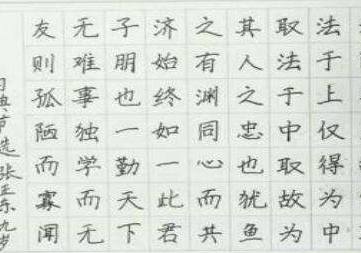 法于上仅得为中
取法于中取故为
其人之忠也犹鱼
之有渊同心而共
济始终如一此君
子朋也一勤天下
无难事独学而无
友则孤陋而寡闻
典节选 张东九岁